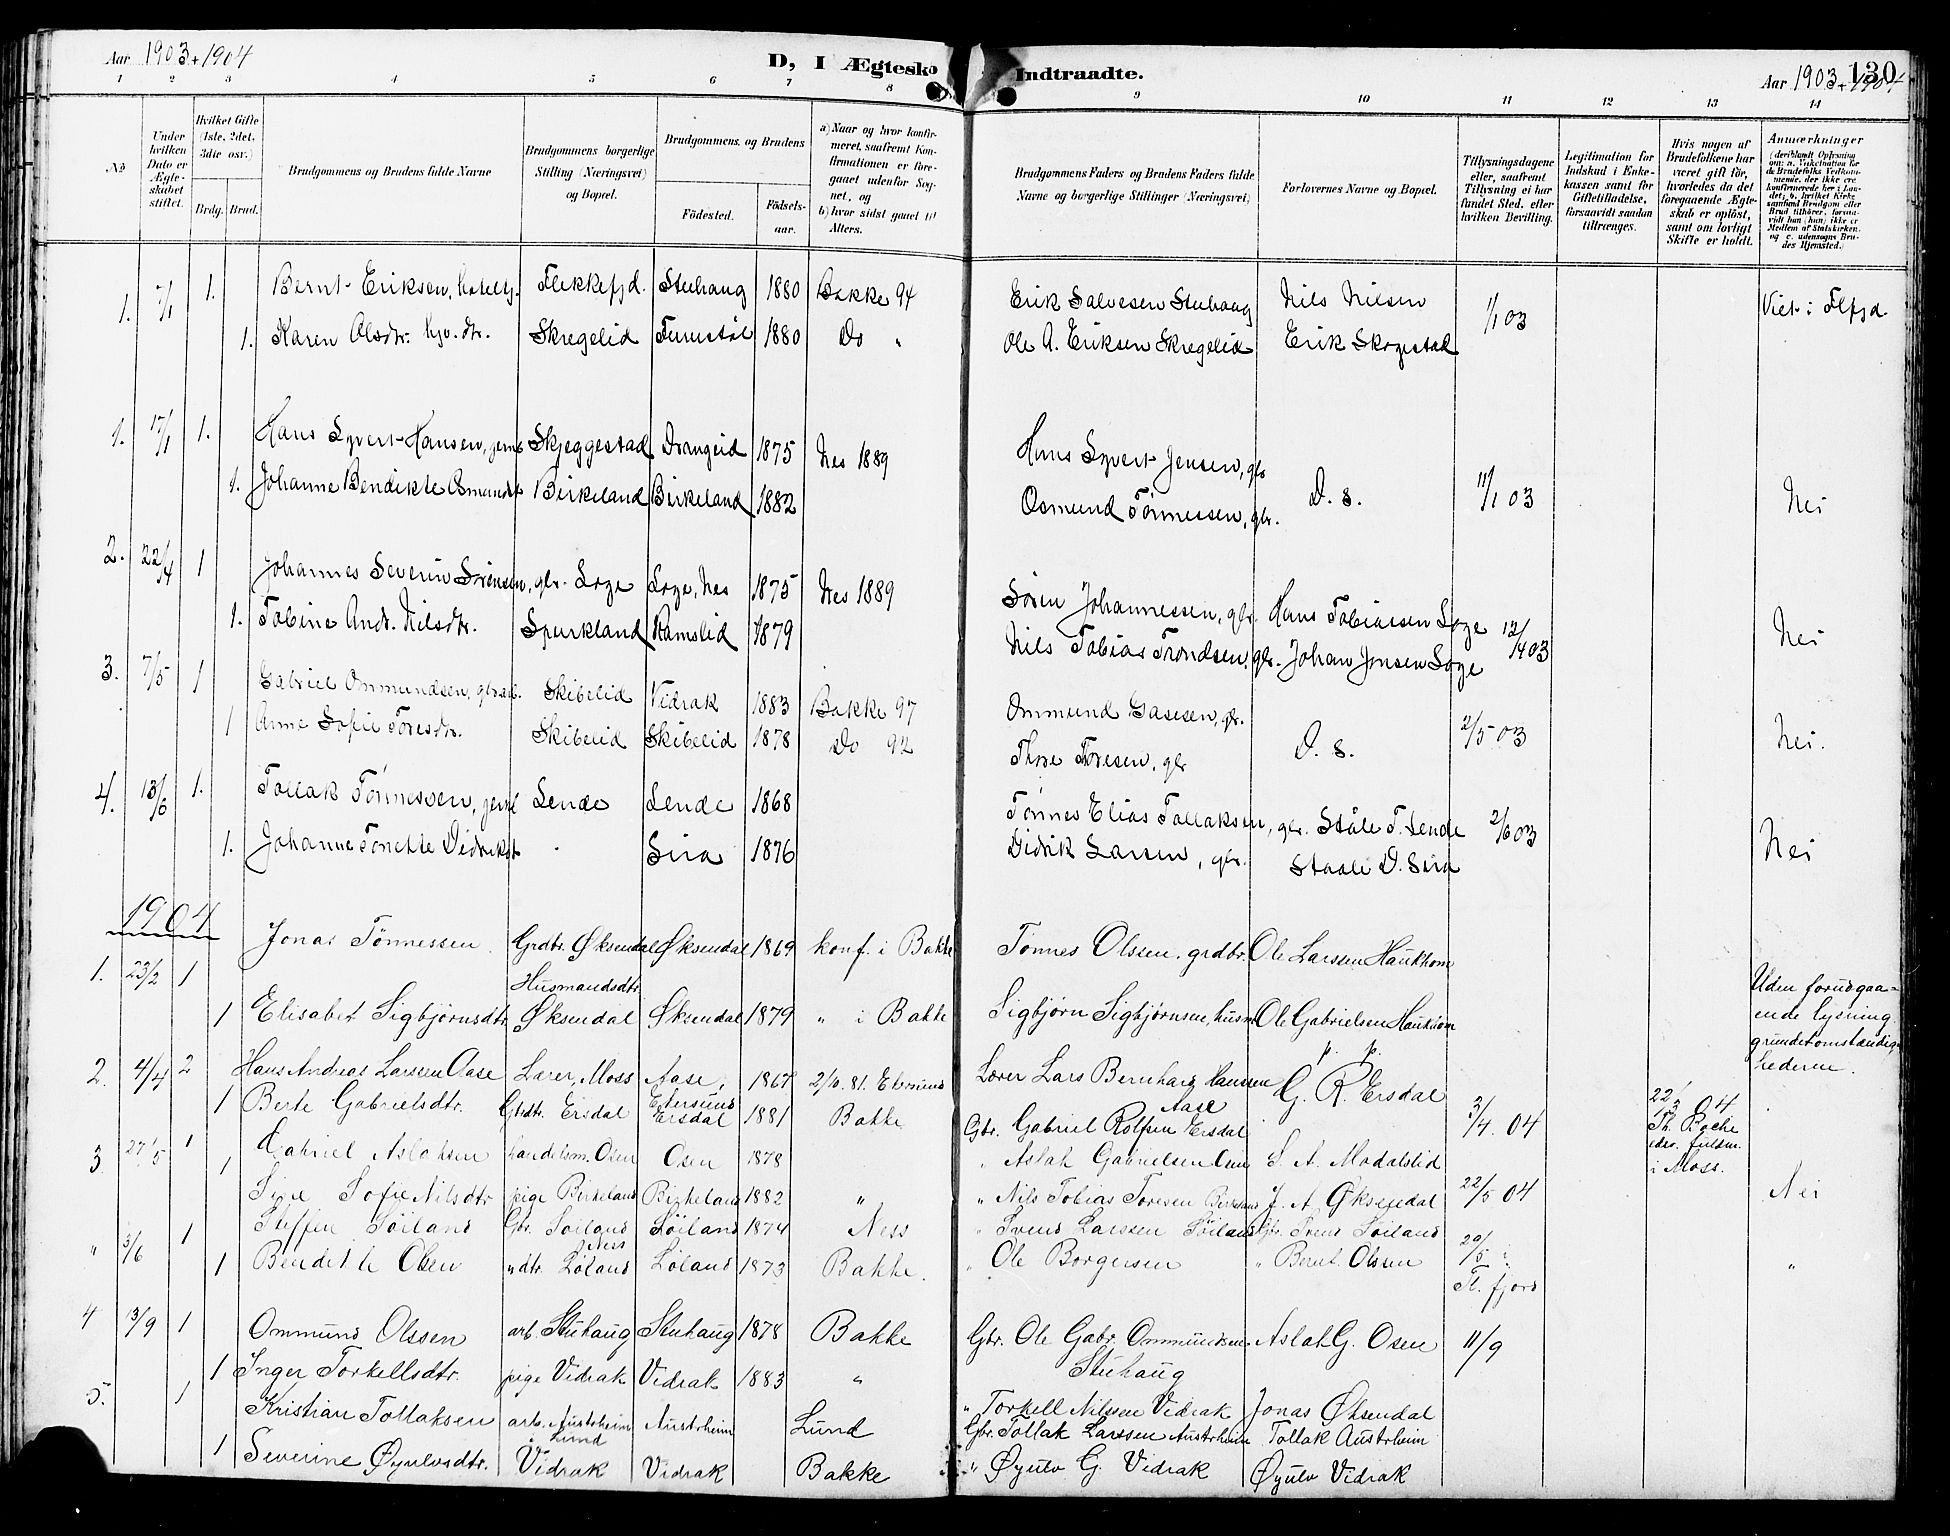 Aar 1903 + 1904
D, I Ægtesk
Indtraadte.
Aar 1903 + 1904
130
1 2 3 4 5 6 7 8 9 10 11 12 13 14
No
Under hvilken Dato er Ægteskabet stiftet.
Hvilket Gifte (1ste, 2det, 3die osv.)
Brdg. Brud.
Brudgommens og Brudens fulde Navne
Brudgommens borgerlige Stilling (Næringsvei) og Bopæl.
Brudgommens og Brudens
Födested.
Födselsaar.
a) Naar og hvor konfirmeret, saafremt Konfirmationen er foregaaet udenfor Sognet, og
b) hvor sidst gaaet til Alters.
Brudgommens Faders og Brudens Faders fulde Navne og borgerlige Stillinger (Næringsvei)
Forlovernes Navne og Bopæl.
Tillysningsdagene eller, saafremt Tillysning ei har fundet Sted, efter hvilken Bevilling.
Legitimation for Indskud i Enkekassen samt for Giftetilladelse, forsaavidt saadan tiltrænges.
Hvis nogen af Brudefolkene har været gift för, hvorledes da det foregaaende Ægteskab er oplöst, samt om lovligt Skifte er holdt.
Anmærkninger
(deriblandt Oplysning om: a. Vaksination for de Brudefolks Vedkommende, der ikke ere konfirmerede her i Landet; b. hvilket Kirkesamfund Brudgom eller Brud tilhörer, forsaavidt han (hun) ikke er Medlem af Statskirken, og c. udensogns Brudes Hjemsted.
1. 7/1 1. Bernt Eriksen, Flekkefjd. Stuhaug 1880 Bakke 94 Erik Salvesen Stuhaug Nils Nilsen 1/1 03 Viet i Flfjd.
1. Karen Olsdtr. Skregelid 1880 Do " Ole A. Eriksen Skregelid Erik Skogestad
1. 17/1 1. Hans Syvert Hansen, Skjeggestad Drangeid 1875 Nes 1889 Hans Syvert Jensen, gbr D. s. 11/1 03 Nei
1. Johanne Bendikte Osmundt Birkeland Birkeland 1882 Osmund Tönnessen, gbr.
2. 22/4 1 Johannes Severin Sörensen, gbr. Loge Loge, Nes 1875 Nes 1889 Sören Johannessen, gbr. Hans Tobiassen Loge 12/4 03 Nei
1. Tobine Andr. Nilsdtr. Spurkland Ramslid 1879 Nils Tobias Trondsen, gbr. Johan Jensen Loge
3. 7/5 1 Gabriel Ommundsen, Skibelid Vidrak 1883 Bakke 97 Ommund Gasesen, gbr. D. s. 2/5 03 Nei.
1 Anne Sofie Toresdtr. Skibelid Skibelid 1878 Do 92 Thore Toresen, gbr
4. 13/6 1. Tollak Tönnessen, Lende Lende 1868 Tönnes Elias Tollaksen, gbr. Ståle T. Lende 2/6 03 Nei
1. Johanne Tonette Didrikst " Sira 1876 Didrik Larsen, gbr. Staale D. Sira
1904
1. 23/2 1 Jonas Tönnessen Grdbr. Øksendal Øksendal 1869 konf. i Bakke Tönnes Olssen, grdbr. Ole Larssen Haukhom
1 Elisabet Sigbjørnsdtr. Husmandsdtr. Øksendal Øksendal 1879 " i Bakke Sigbjørn Sigbjørnsen, husm. Ole Gabrielsen Haukhom Uden forudgaaende lysning grundet omstændighederne.
2. 4/4 2 Hans Andreas Larssen Aase Lærer, Moss Aase, Ekersund 1867 2/10. 81. Ekersund Lærer Lars Bernhard Hanssen Aase p. p. G. R. Ersdal 3/4. 04 22/3 04
1 Berte Gabrielsdtr. Gbrdtr. Ersdal Ersdal 1881 Bakke Gbr. Gabriel Rolfsen Ersdal i Moss.
3 27/5 1 Gabriel Aslaksen handelsm. Osen Osen 1878 " Aslak Gabrielsen Osen S. A. Modalslid 22/5 04 Nei
1 Sire Sofie Nilsdtr pige Birkeland Birkeland 1882 " " Nils Tobias Toresen Birkeland J. A. Øksendal
" 3/6 1 Steffen Söiland Gbr. Söiland Ness Söiland 1874 Ness " Svend Larssen Söiland Gbr. Svend Söiland 29/5 i Fl. fjord "
1 Bendikte Olsen "dtr. Løland Løland 1873 Bakke. " Ole Borgersen " Bernt Olssen
4 13/9 1 Ommund Olssen arb. Stuhaug Stuhaug 1878 Bakke Gbr. Ole Gabr. Ommundsen Stuhaug Aslak G. Osen 11/9
1 Inger Torkellsdtr. pige Vidrak Vidrak 1883 " " Torkell Nilssen Vidrak Jonas Øksendal
5. 1 Kristian Tollaksen arb. Austrheim i Lund Austrheim Lund Gbr. Tollak Larssen Austrheim Tollak Austrheim
1 Severine Øyulvsdtr. Vidrak Vidrak Bakke " Øyulv G. Vidrak Øyulv Vidrak